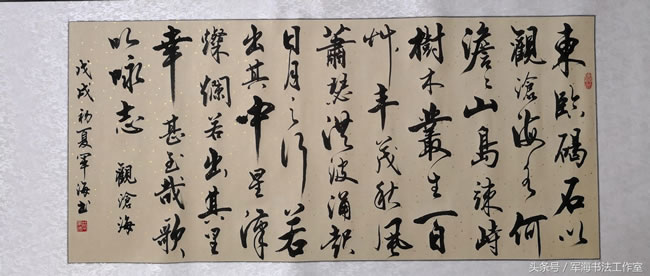 東臨碣石以
觀滄海水何
澹々山島竦峙
樹木叢生百
艸丰茂秋風
蕭瑟洪波涌起
日月之行若
出其中星漢
燦爛若出其里
幸甚至哉歌
以咏志 觀滄海
戊戌初夏军海书
头条号 / 军海书法工作室